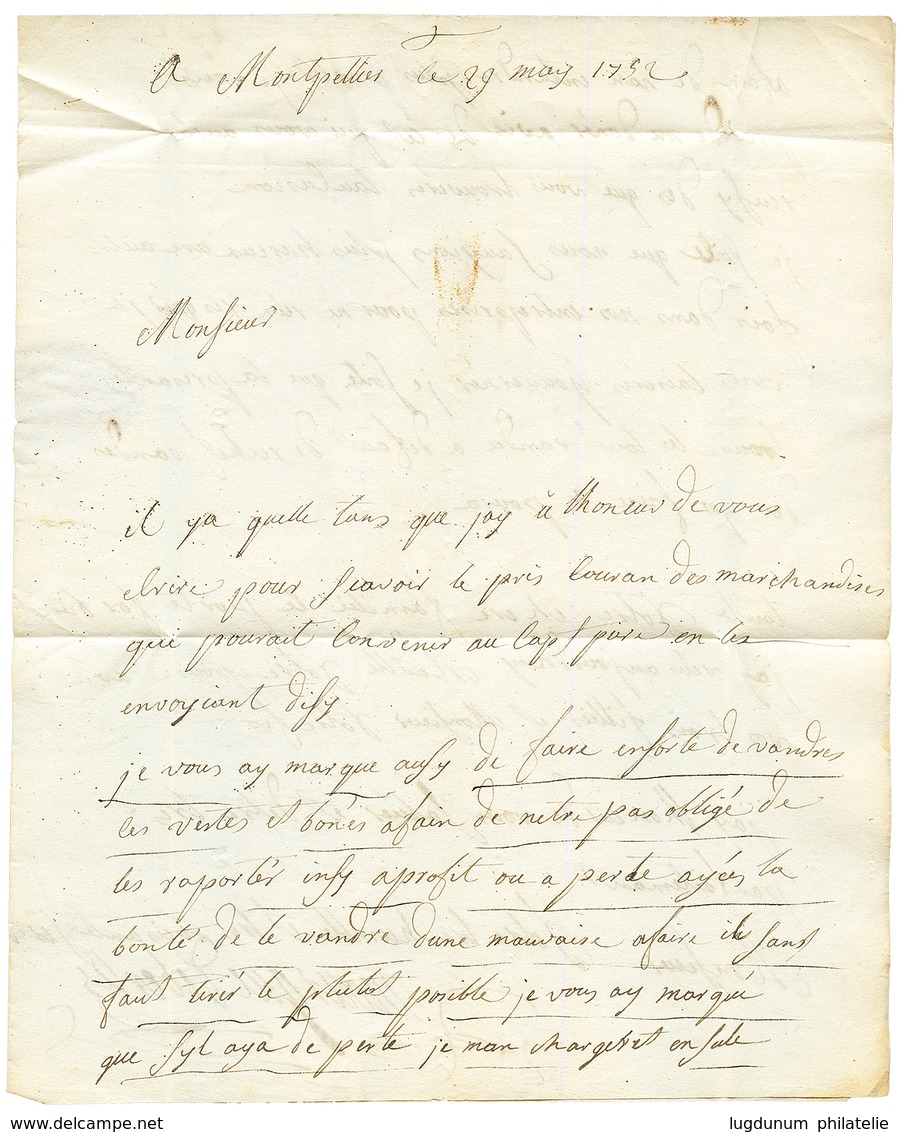 A Montpellier le 29 may 1752
Monsieur
il ya quelle tans que jay û lhoneur de vous
écrire pour scavoir le pris couran des marchandises
qui pourait convenir au en les
envoyiant disy
je vous ay marque ausy de faire ensorte de vandres
les vertes et bones afain de netre pas obligé de
les raportér insy aprofit ou a perde ayées la
bonté de le vandre dune mauvaise afaire il sant
faut tirér le plutot posible je vous ay marqué
que syl aya de perte je man chargeret
www.delcampe.net
lugdunum philatelie